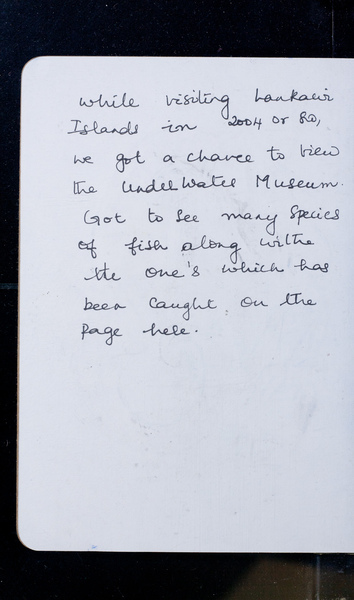 while visiting Lankawi
Islands in 2004 or so,
we got a chance to view
the Underwater Museum.
Got to see many species
of fish along withe
the one's which has
been caught on the
page here.